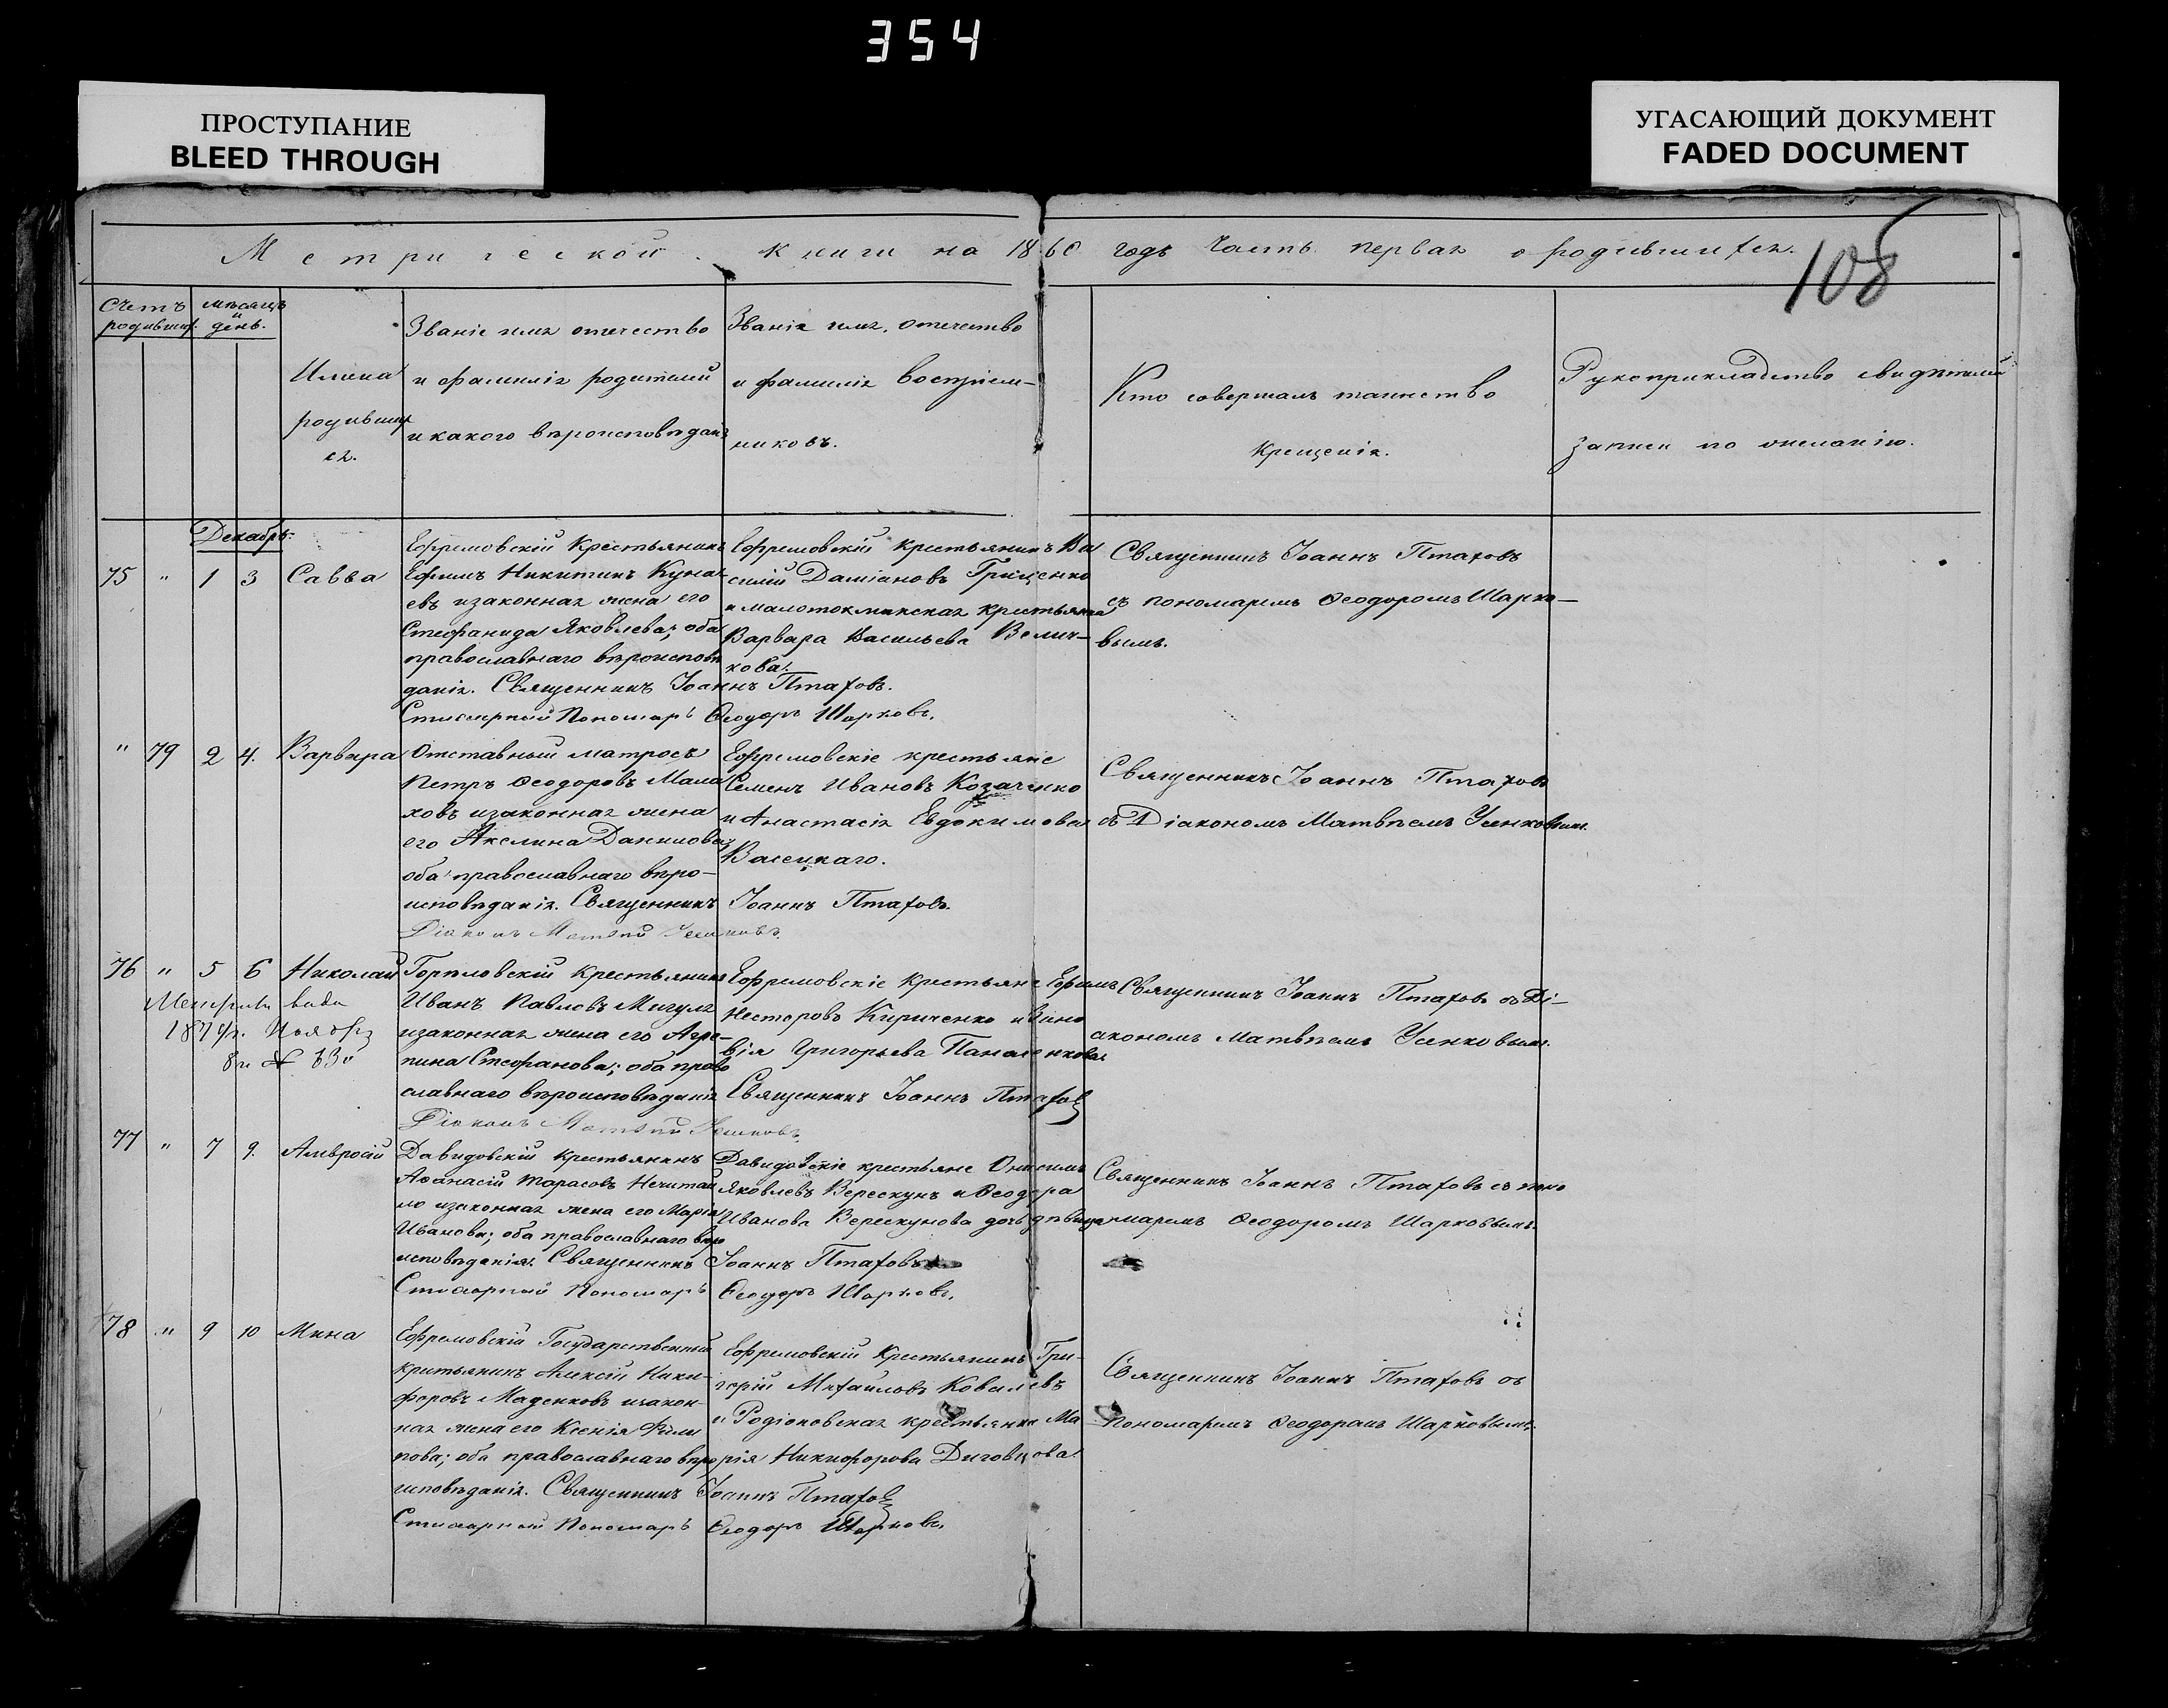 354
ПРОСТУПАНИЕ
BLEED THROUGH
УГАСАЮЩИЙ ДОКУМЕНТ
FADED DOCUMENT
108
Метрической книги на 1860 годъ часть первая о родившихся.
Счетъ родивших.
мѣсяцъ и день.
Имена
родивших
ся.
Званіе имя отечество
и фамилія родителей
и какого вѣроисповѣданія
Званіе имя, отечество
и фамилія воспріем-
никовъ.
Кто совершалъ таинство
крещенія.
Рукоприкладство свидѣтелей
записи по желанію.
Декабрь
75 " 1 3 Савва
Ефремовскій Крестьянинъ
Ефимъ Никитинъ Куна-
евъ изаконная жена его
Стефанида Яковлева; оба
православнаго вѣроисповѣ
данія. Священникъ Іоаннъ Птаховъ.
Стихарный Пономарь Ѳеодоръ Шарковъ.
Ефремовскій крестьянинъ Ва
силій Даміановъ Гриценко
и малотокмакская крестьянка
Варвара Васильева Велич-
кова.
Священникъ Іоаннъ Птаховъ
съ пономаремъ Ѳеодоромъ Шарко-
вымъ.
" 79 2 4. Варвара
Отставный матросъ
Петръ Ѳеодоровъ Мала
ховъ изаконная жена
его Акелина Данилова;
оба православнаго вѣро-
исповѣданія. Священникъ Іоаннъ Птаховъ.
Діаконъ Матѳій Усенковъ.
Ефремовскіе крестьяне
Семенъ Ивановъ Козаченко
и Анастасія Евдокимова
Васецкаго.
Священникъ Іоаннъ Птаховъ
съ Діакономъ Матвѣемъ Усенковымъ.
76 " 5 6 Николай
1874 г.
Горѣловскій крестьянинъ
Иванъ Павловъ Мигуля
изаконная жена его Агре-
пина Стефанова; оба право
славнаго вѣроисповѣданія Священникъ Іоаннъ Птаховъ
Діаконъ Матѳій Усенковъ.
Ефремовскіе крестьяне Ефимъ
Несторовъ Кириченко и Зино
вія Григорьева Панасенкова
Священникъ Іоаннъ Птаховъ съ Ді-
акономъ Матвѣемъ Усенковымъ.
77 " 7 9. Амвросій
Давидовскій крестьянинъ
Аѳанасій Тарасовъ Нечитай
ло изаконная жена его Марія
Иванова; оба православнаго вѣро
исповѣданія. Священникъ Іоаннъ Птаховъ
Стихарный Пономарь Ѳеодоръ Шарковъ.
Давидовскіе крестьяне Онисимъ
Яковлевъ Верескунъ и Ѳеодора
Иванова Верескунова дочь дѣвица
Священникъ Іоаннъ Птаховъ съ поно
маремъ Ѳеодоромъ Шарковымъ.
78 " 9 10 Мина
Ефремовскій Государственный
критьянинъ Алексій Ники-
форовъ Маденковъ изакон-
ная жена его Ксенія Фили
пова; оба православнаго вѣро
исповѣданія. Священникъ Іоаннъ Птаховъ
Стихарный Пономарь Ѳеодоръ Шарковъ.
Ефремовскій Крестьянинъ Гри-
горій Михайловъ Ковалевъ
и Родіоновская крестьянка Ма
рія Никифорова Диговцова
Священникъ Іоаннъ Птаховъ съ
пономаремъ Ѳеодоромъ Шарковымъ.